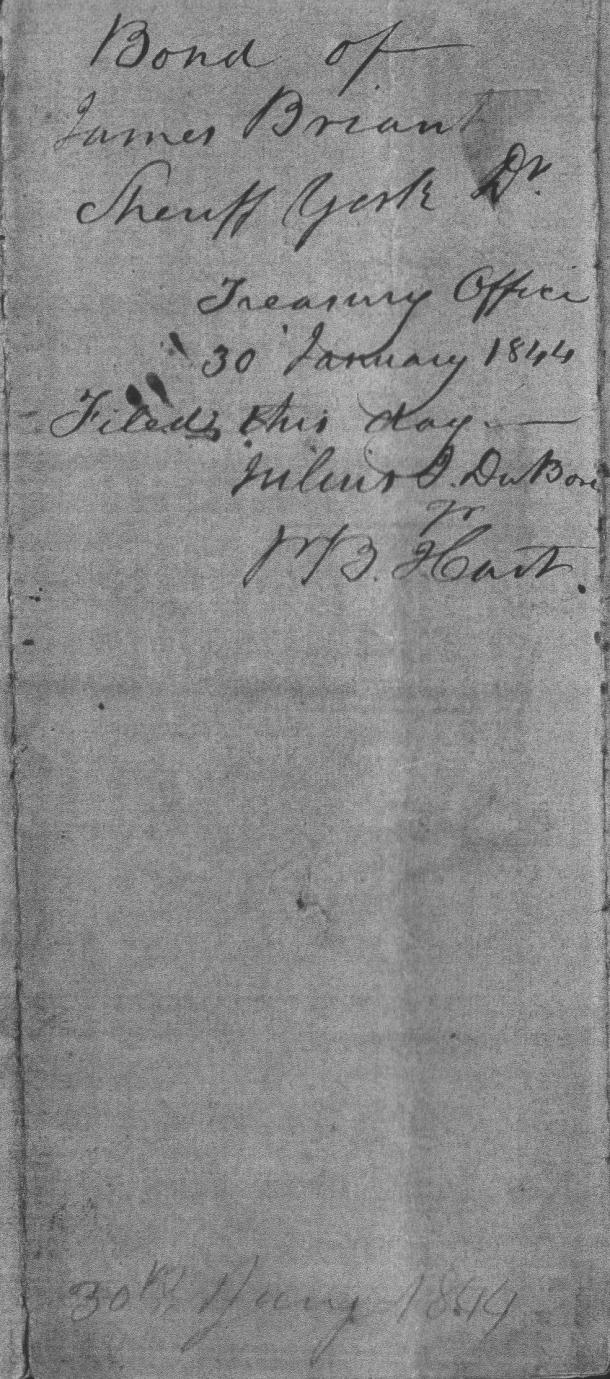 Bond of
James Briant
Sheriff York Dt.
Treasury Office
30 January 1844
Filed this day.—
Julius J. DuBose
for
W B. Hart.
30th Jany 1844